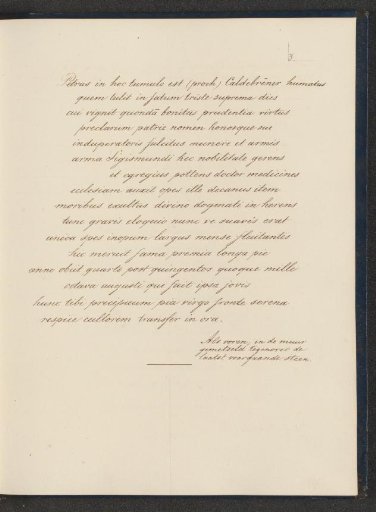 3
Petrus in hoc tumulo est (proch) Caldebrēner humatus
quem tulit in fatum triste suprema dies
cui viguit quondā bonitas prudentia virtus
preclarum patrie nomen honorque sue
induperatoris fulcitus munere et armis
arma Sigismundi hec nobilitate gerens
et egregius pollens doctor medicines
ecclesiam auxit opes ille decanus item
moribus excultus divino dogmate in herens
tunc gravis eloquio nunc ve suavis erat
unica spes inopum largus mense fluitantis
hec meruit fama premia longa pie
anno obiit quarto post quingentos quoque mille
octava augusti que fuit ipsa jovis
hunc tibi precipuum pia virgo fronte serena
respice cultorem transfer in ora.
Als voren, in de muur
gemetseld tegenover de
laatst voorgaande steen.